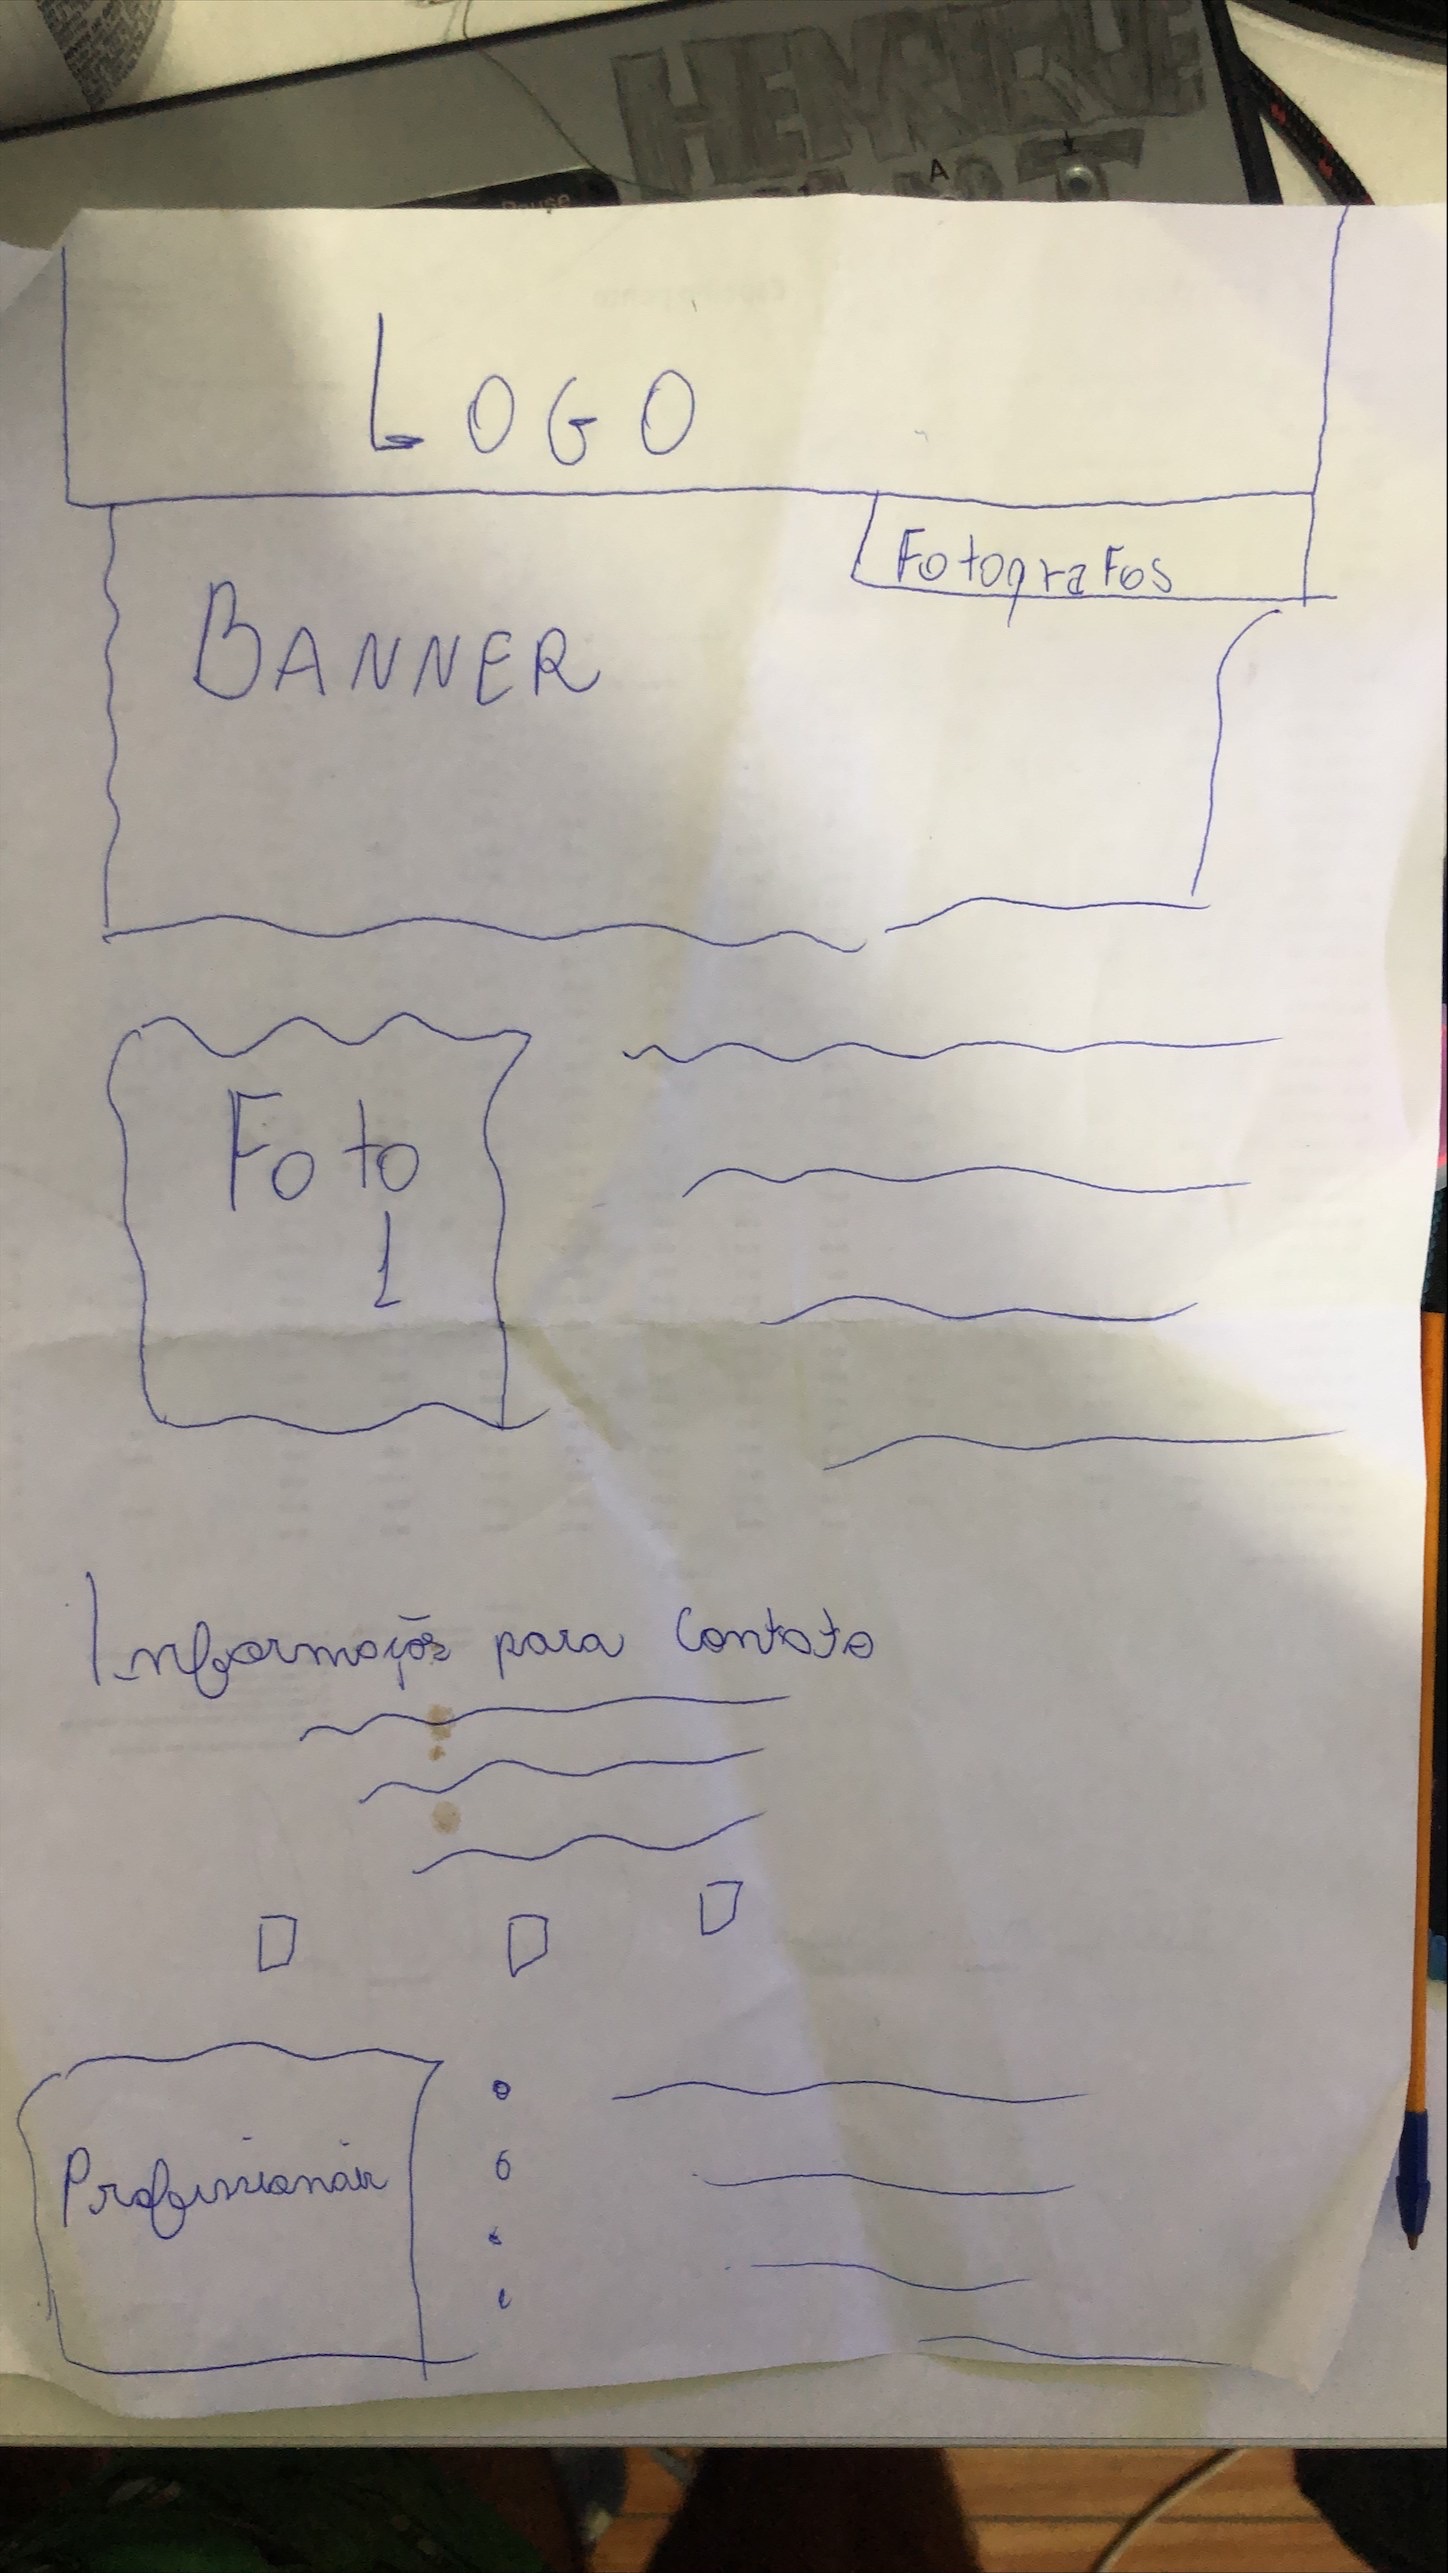 HENRIQUE
A
Pause
LOGO
Fotografos
BANNER
Foto
1
Informações para Contato
Profissionais